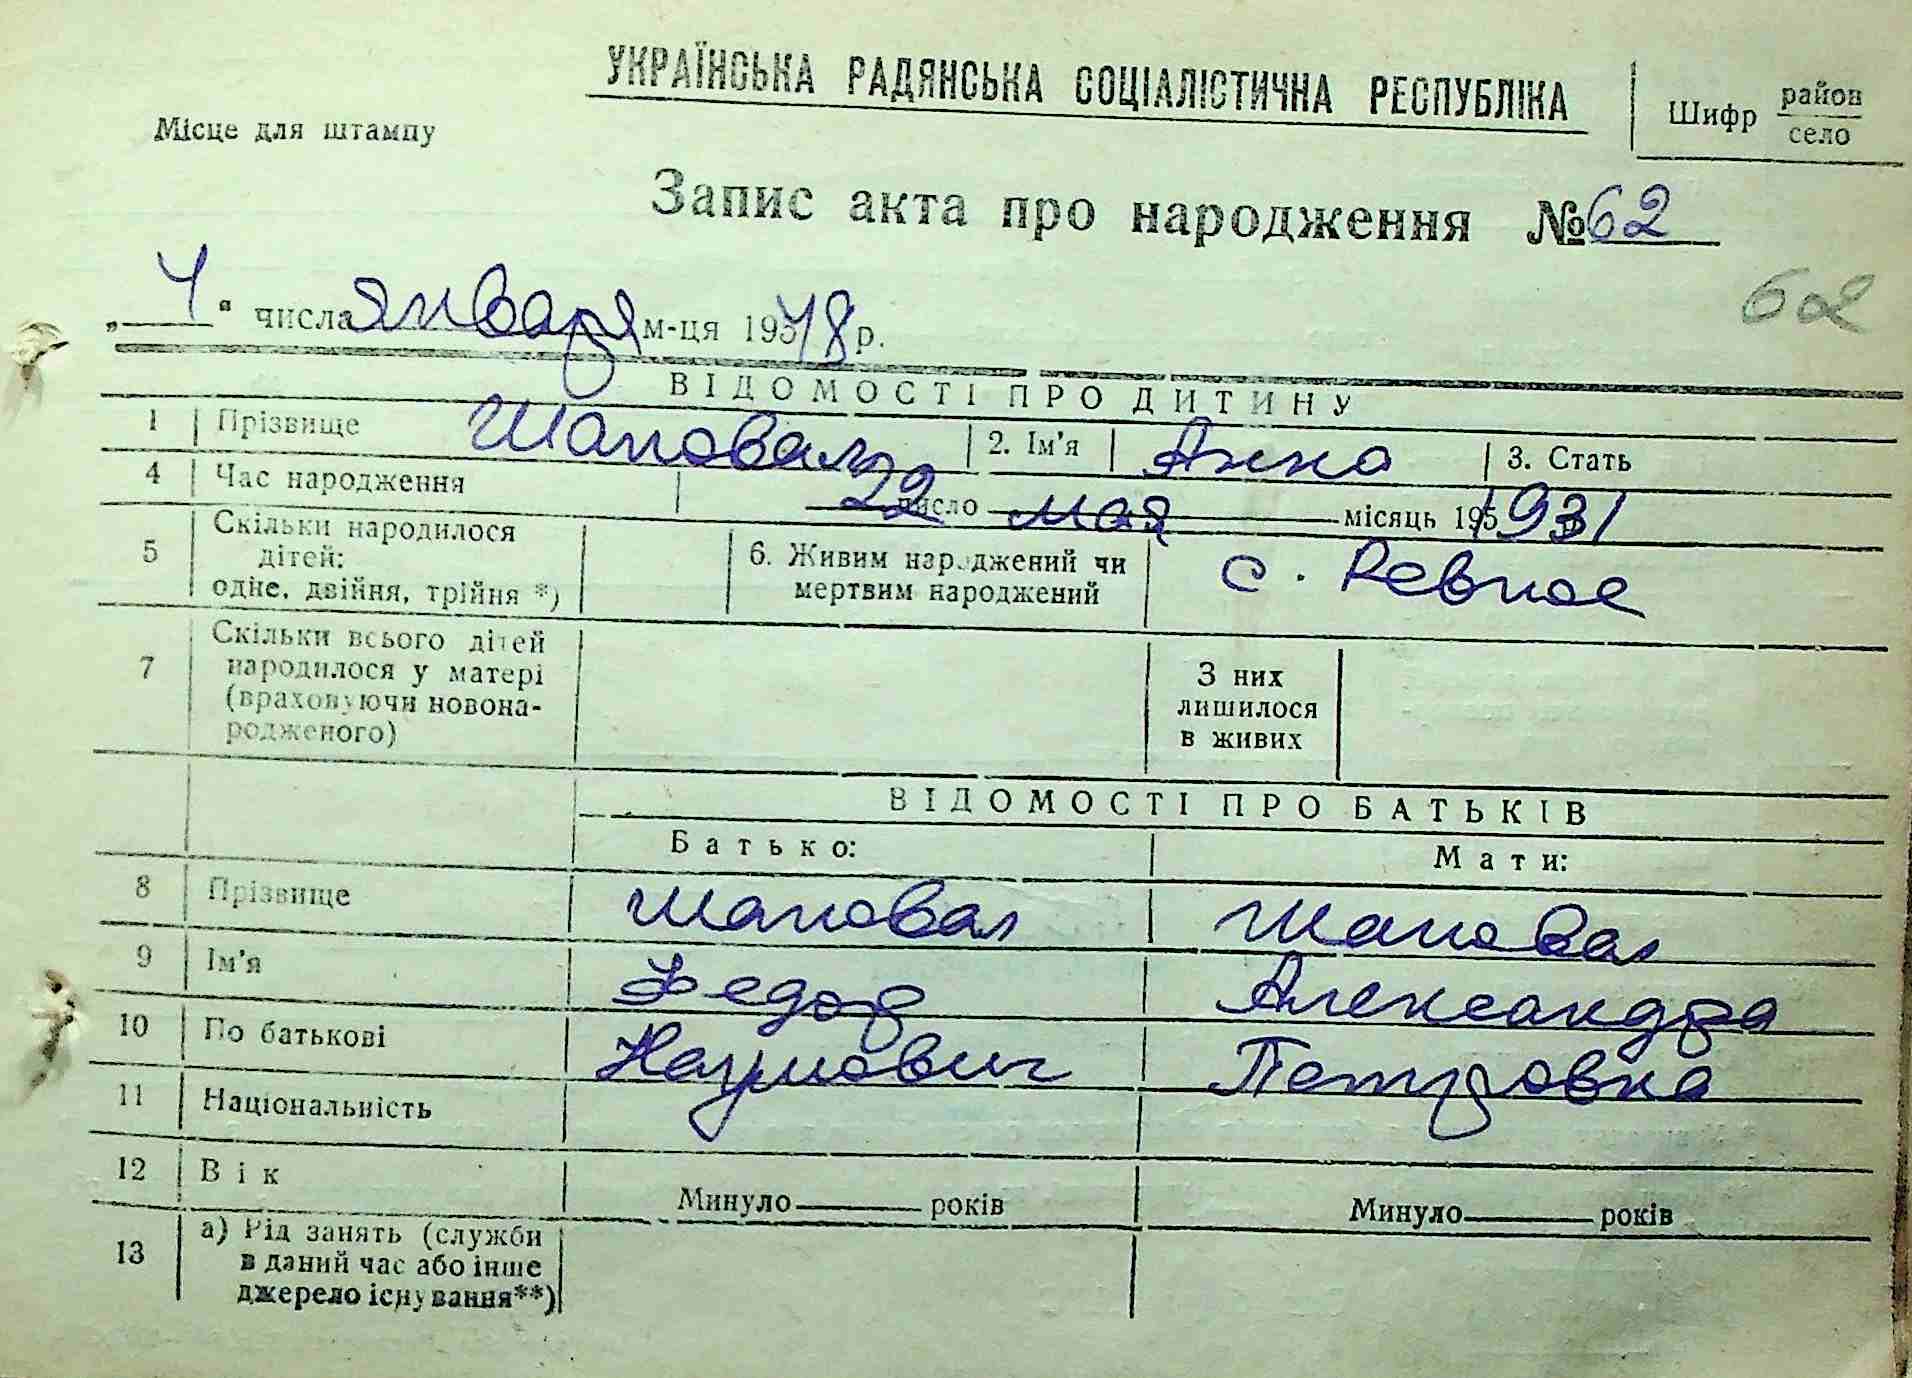 УКРАЇНСЬКА РАДЯНСЬКА СОЦІАЛІСТИЧНА РЕСПУБЛІКА
Шифр район
село
Місце для штампу
Запис акта про народження № 62
62
„ 4 “ числа января м-ця 195 48 р.
ВІДОМОСТІ ПРО ДИТИНУ
1 Прізвище Шаповал 2. Ім'я Анна 3. Стать
4 Час народження 22 число мая місяць 195 1931
5 Скільки народилося дітей: одне, двійня, трійня *) 6. Живим народжений чи мертвим народжений с. Ревное
7 Скільки всього дітей народилося у матері (враховуючи новонародженого) З них лишилося в живих
ВІДОМОСТІ ПРО БАТЬКІВ
Батько: Мати:
8 Прізвище Шаповал Шаповал
9 Ім'я Федор Александра
10 По батькові Наумович Петровна
11 Національність
12 Вік Минуло років Минуло років
13 а) Рід занять (служби в даний час або інше джерело існування**)